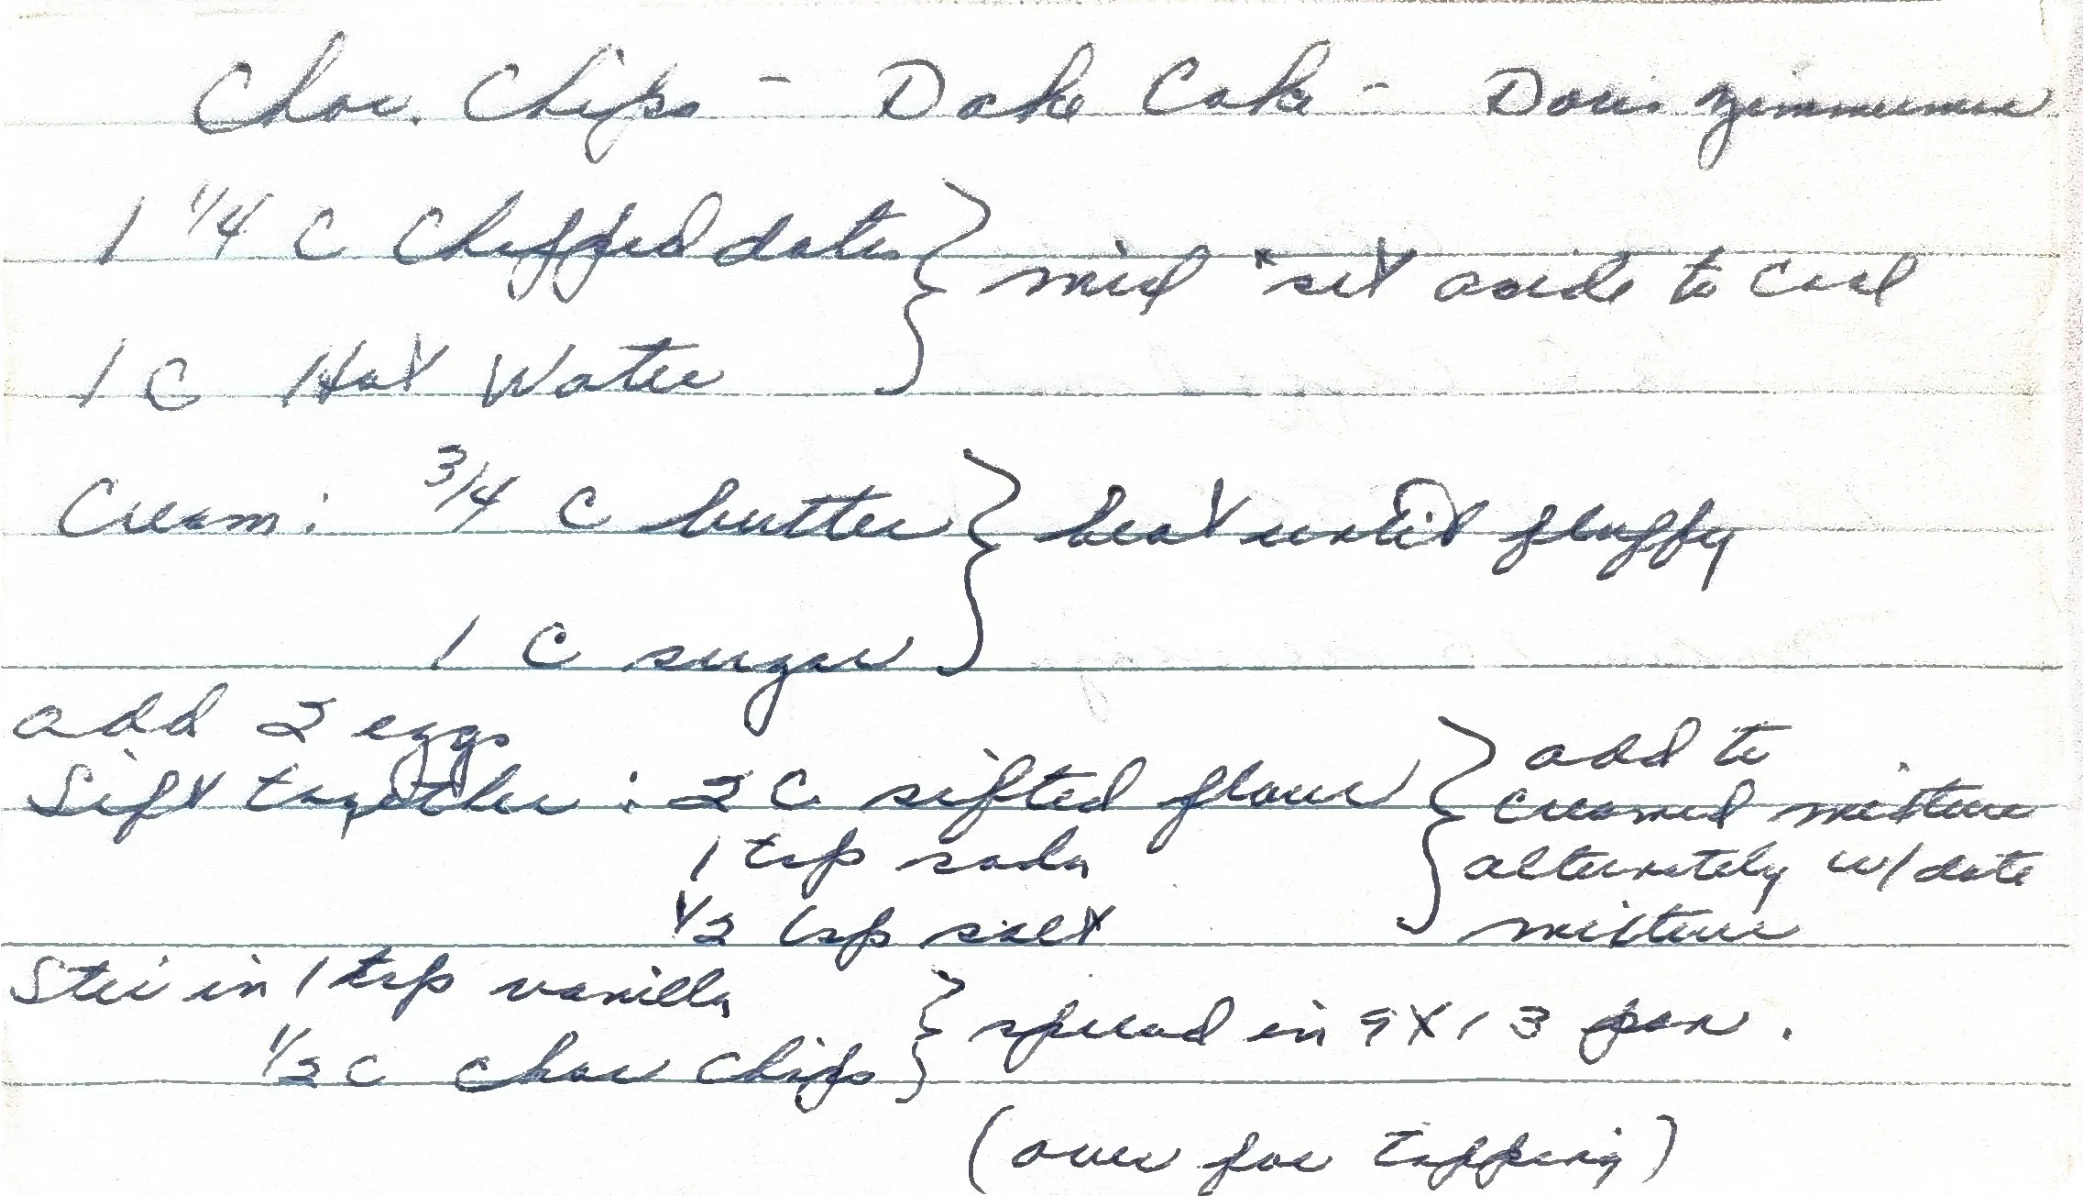 Choc. Chips - Date Cake - Doris Zimmerman
1 1/4 C Chopped dates } mix & set aside to cool
1 C Hot Water
Cream: 3/4 C butter } beat until fluffy
1 C sugar
add 2 eggs
Sift together : 2 C sifted flour } add to
creamed mixture
1 tsp soda
alternately w/ date
1/2 tsp salt
mixture
Stir in 1 tsp vanilla } spread in 9X13 pan.
1/2 C choc chips
(over for topping)